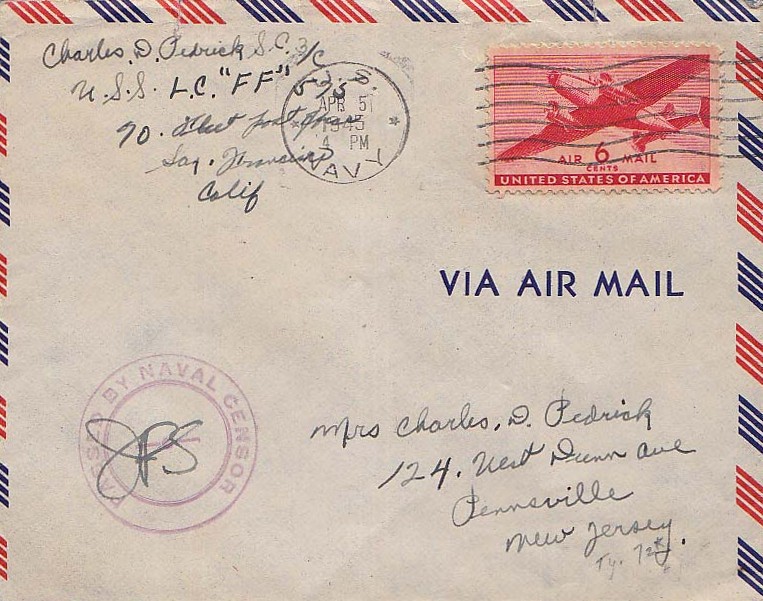 Charles. D. Pedrick S.C. 3/C
U.S.S. L.C. "FF" 573
℅. Fleet post office
San. Francisco
Calif
U. S. NAVY
APR 5
1945
4 PM
AIR 6 MAIL
CENTS
UNITED STATES OF AMERICA
VIA AIR MAIL
PASSED BY NAVAL CENSOR
JPS
Mrs Charles. D. Pedrick
124. West Dunn Ave
Pennsville
New Jersey.